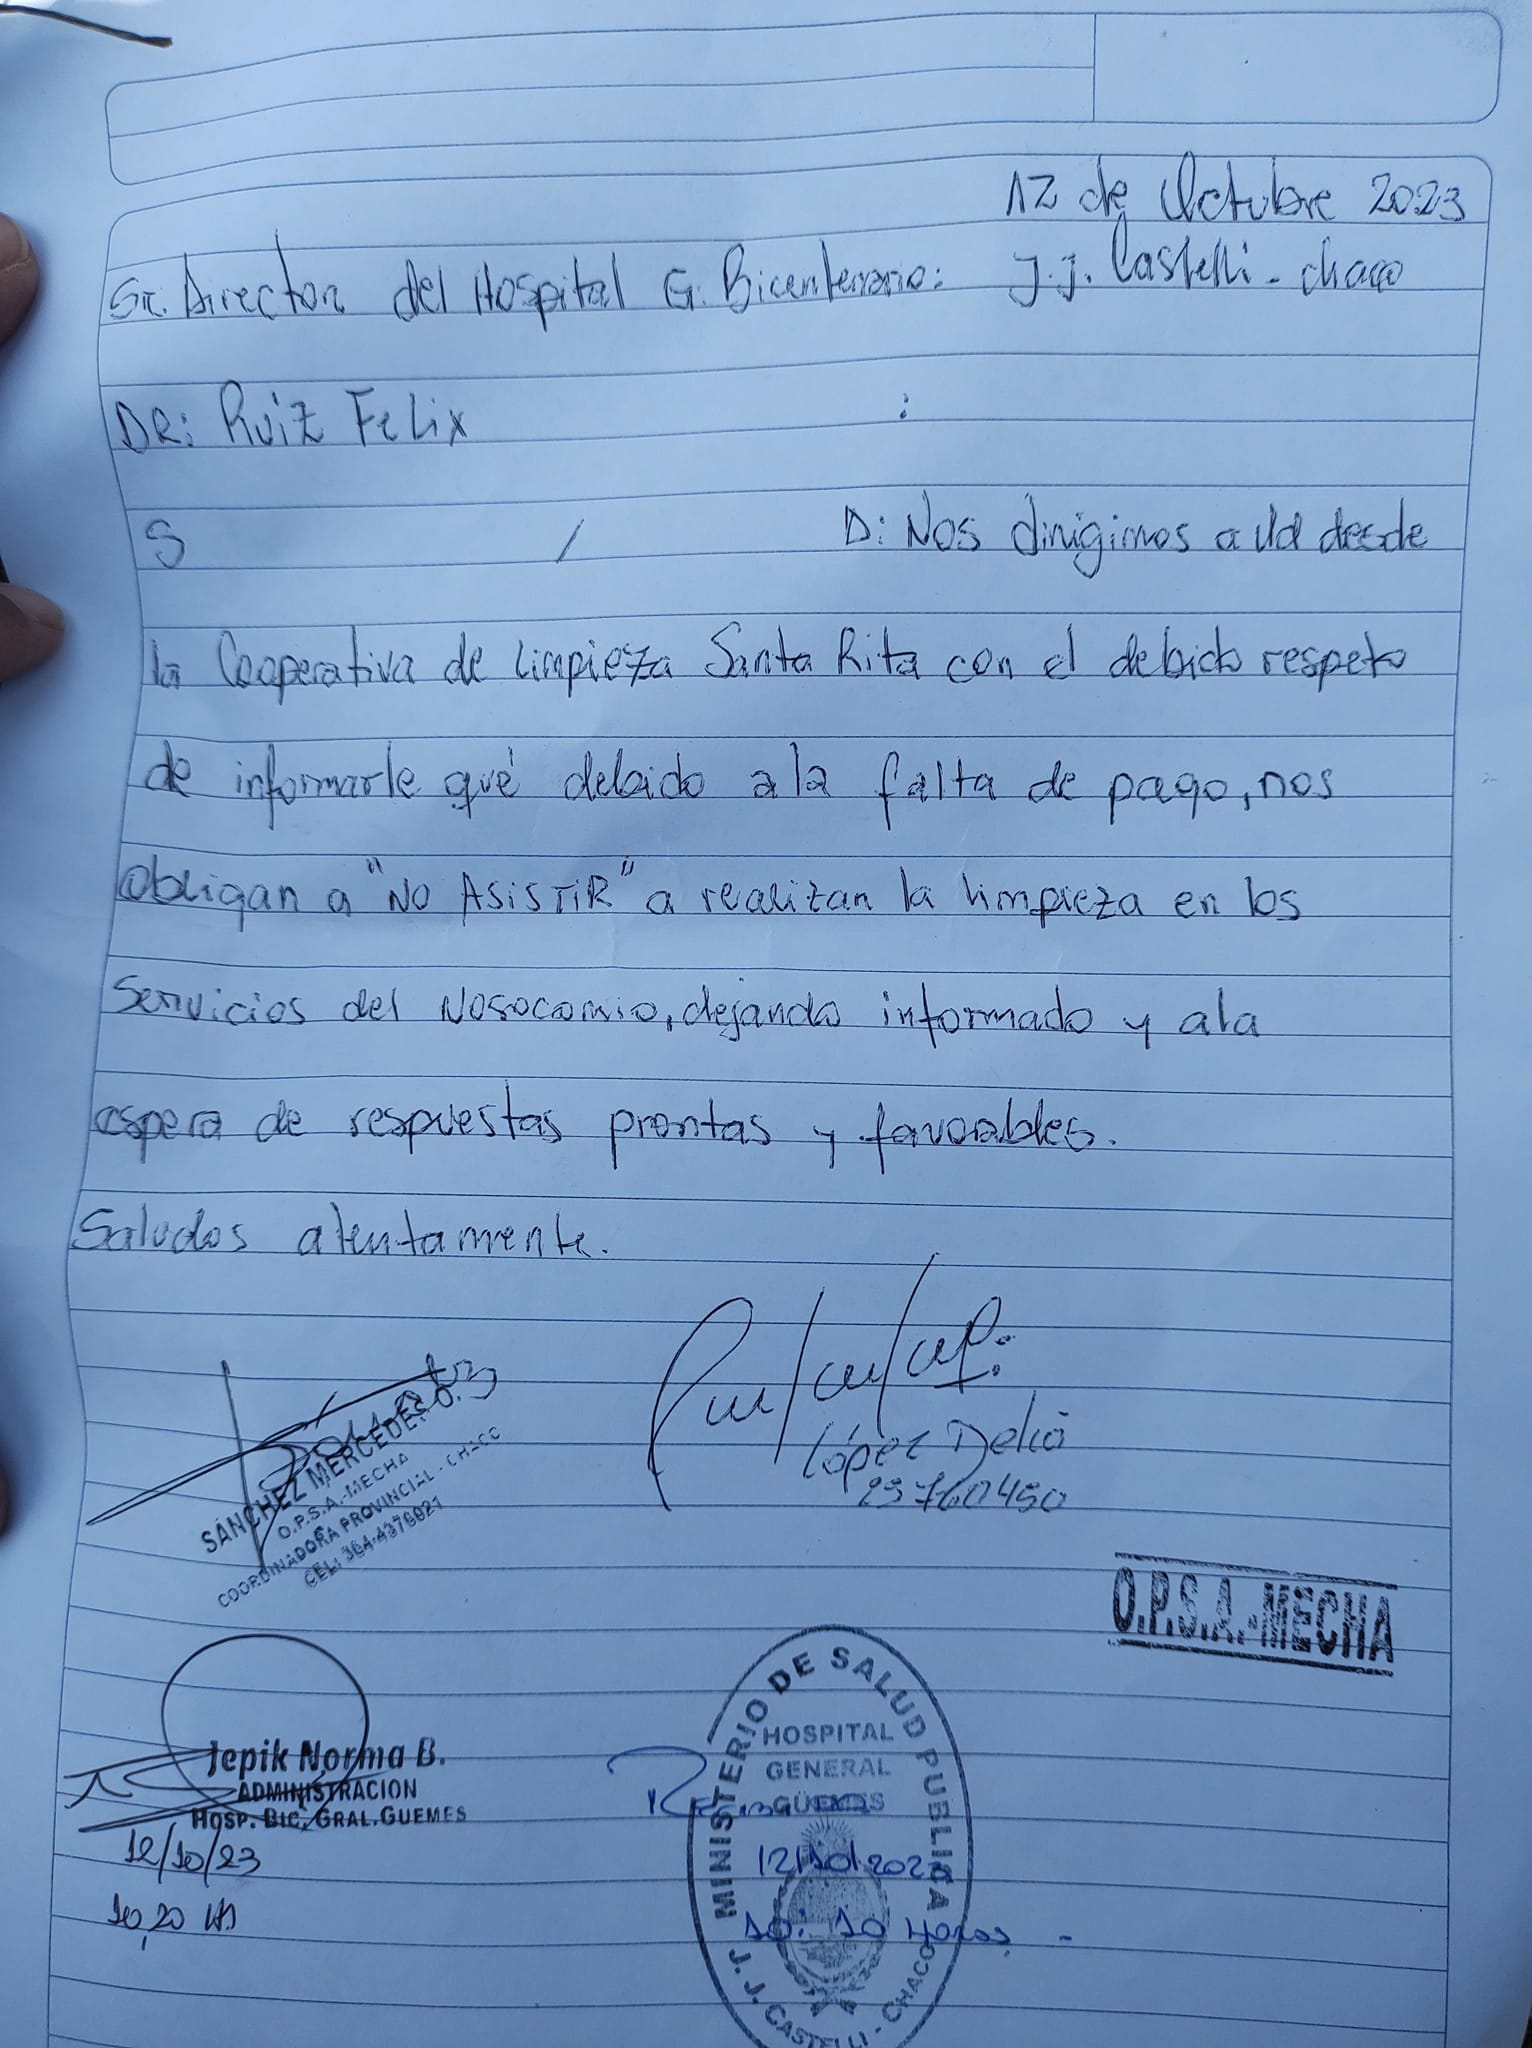 12 de Octubre 2023
Sr. Director del Hospital G. Bicentenario: J.J. Castelli - Chaco
DR: Ruiz Felix :
S / D: Nos dirigimos a Ud desde
la Cooperativa de Limpieza Santa Rita con el debido respeto
de informarle qué debido a la falta de pago, nos
obligan a "NO ASISTIR" a realizan la limpieza en los
Servicios del Nosocomio, dejando informado y a la
espera de respuestas prontas y favorables.
Saludos atentamente.
López Delia
29760450
SANCHEZ MERCEDES O.
O.P.S.A.-MECHA
COORDINADORA PROVINCIAL - CHACO
CEL: 364-4376921
O.P.S.A.-MECHA
Jepik Norma B.
ADMINISTRACION
HOSP. BIC. GRAL. GUEMES
12/10/23
10,20 Hs
MINISTERIO DE SALUD PUBLICA
HOSPITAL
GENERAL
GÜEMES
12/10/2023
10:10 Horas.-
J. J. CASTELLI - CHACO